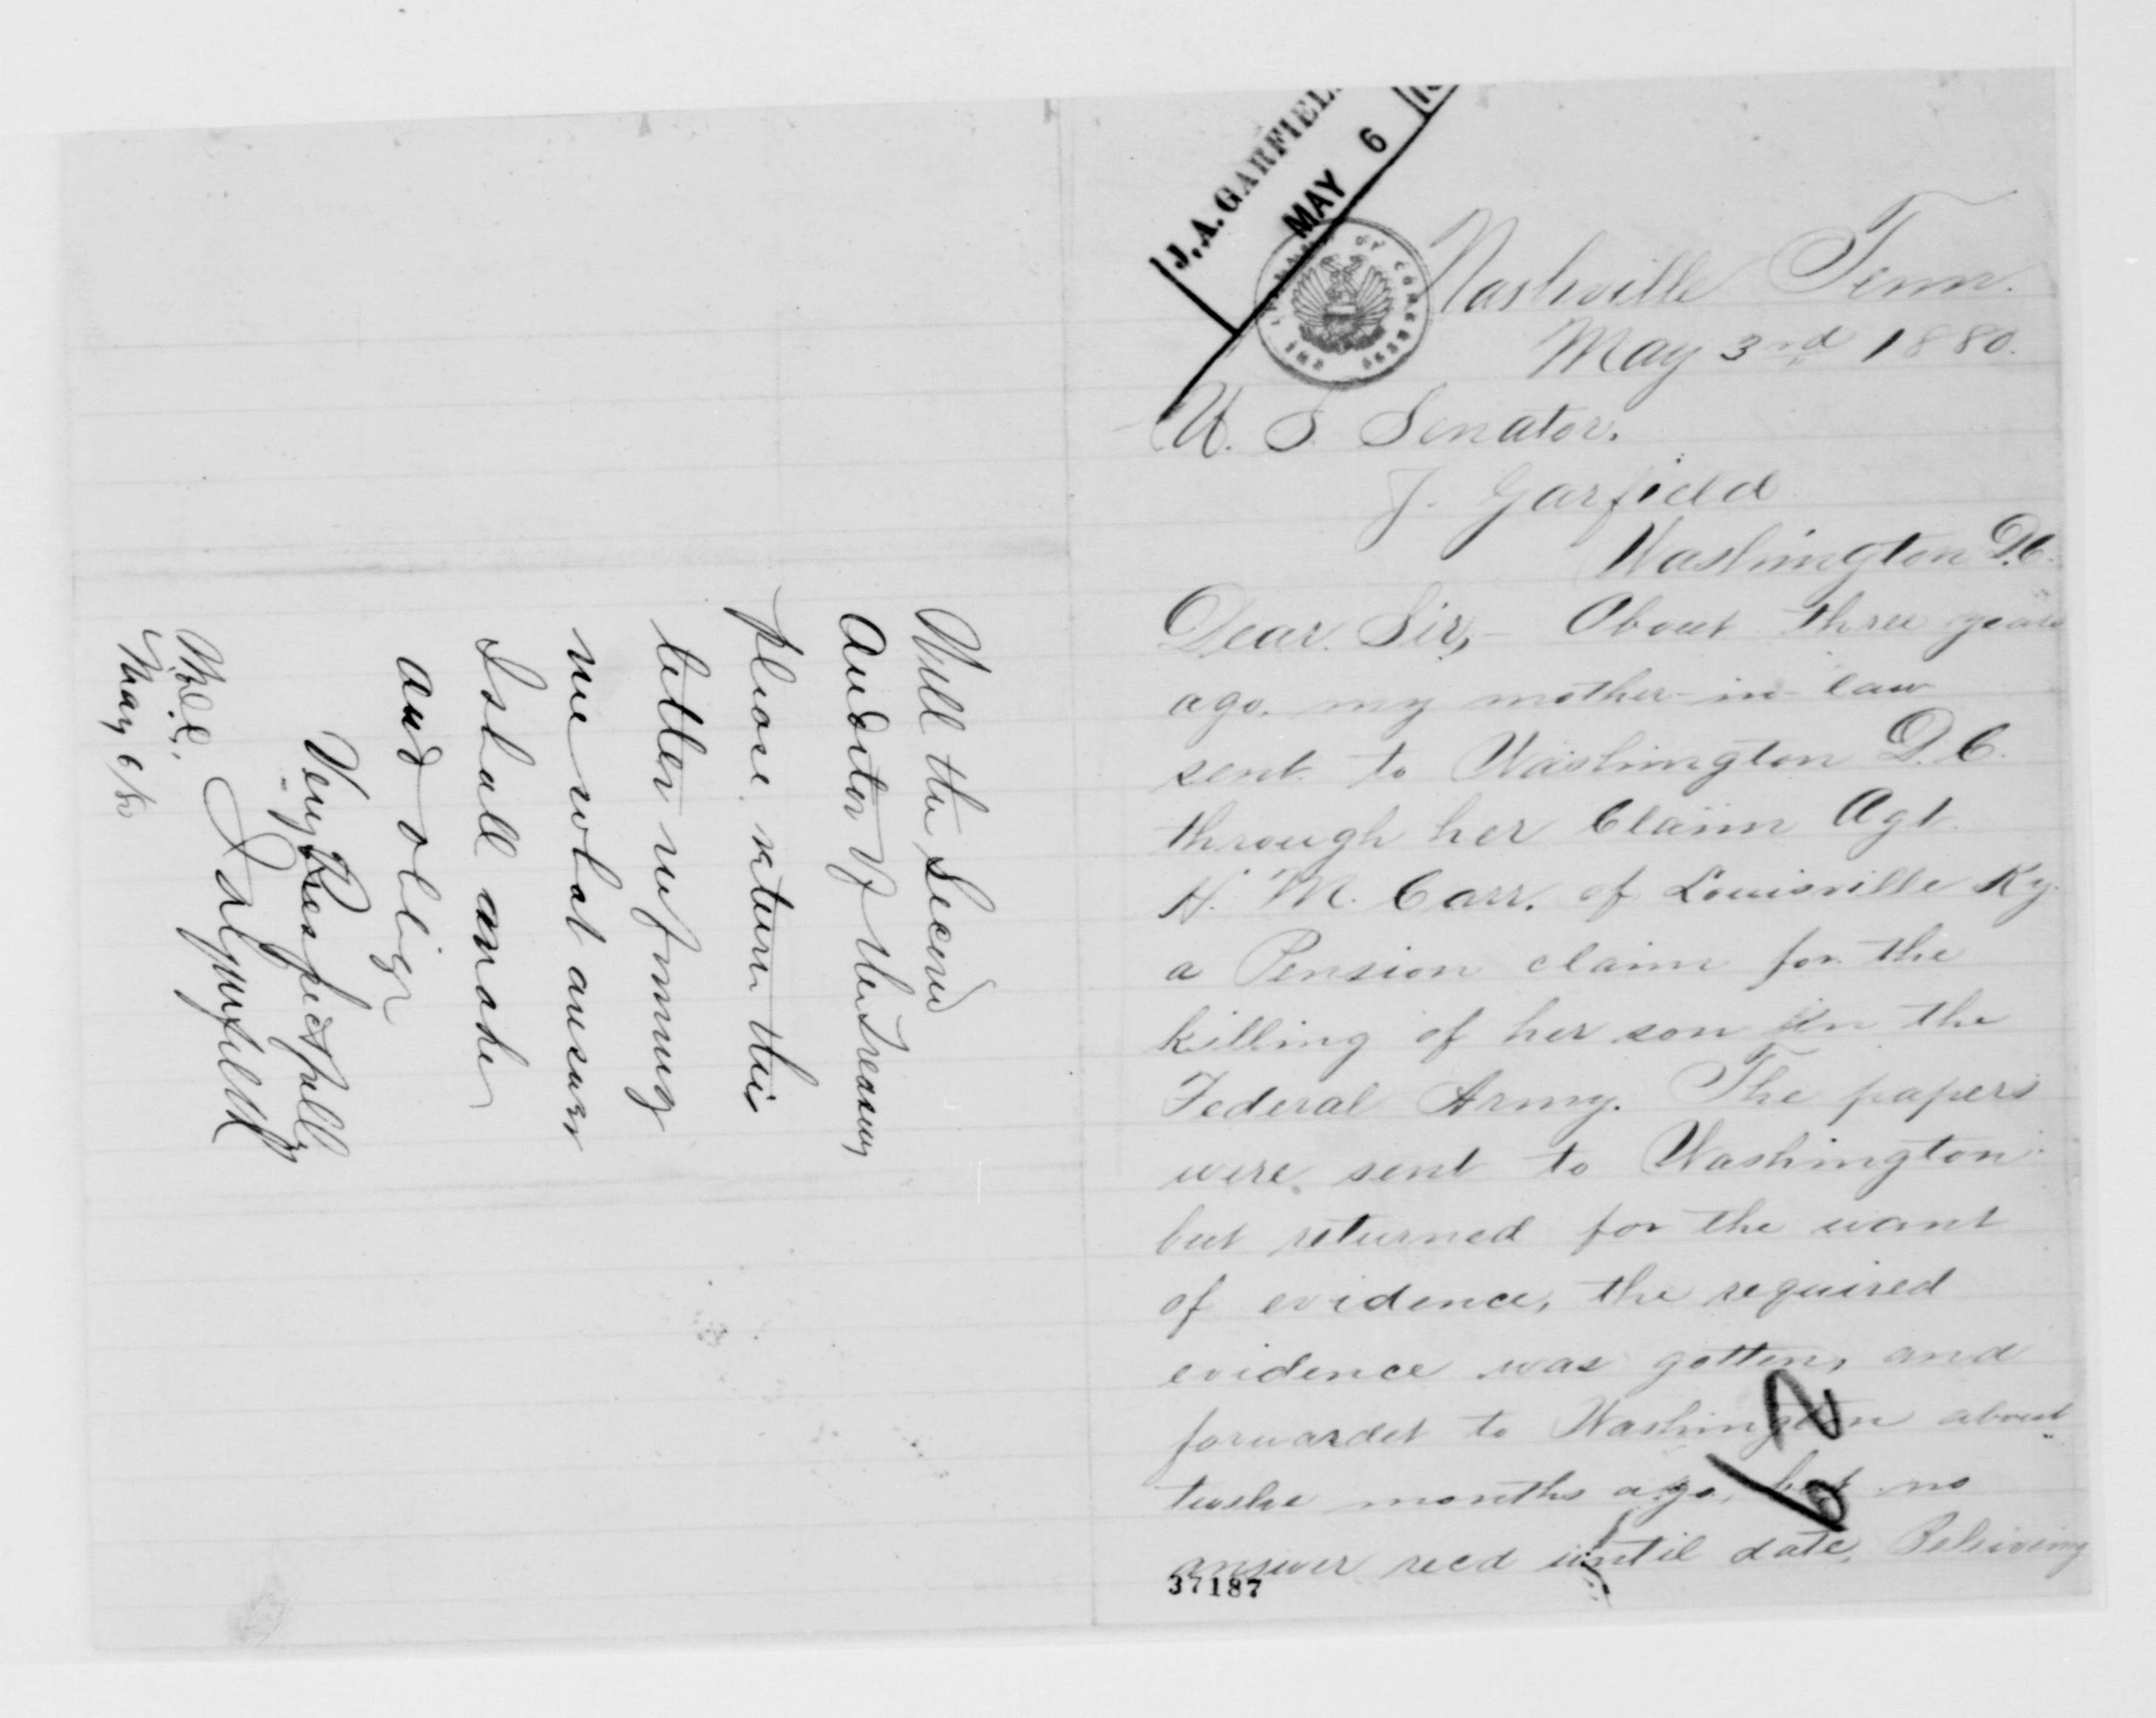 J. A. GARFIEL
MAY 6
Nashville Tenn.
May 3rd 1880.
U. S. Senator.
J. Garfield
Washington D.C.
Dear Sir,- About three years
ago. my mother-in-law
sent to Washington D. C.
through her Claim Agt.
H. M. Carr. of Louisville Ky.
a Pension claim for the
killing of her son in the
Federal Army. The papers
were sent to Washington
but returned for the want
of evidence, the required
evidence was gotten, and
forwardet to Washington about
twelve months ago, but no
answer recd until date. Beleiving
37187
62
Will the Second
Auditor of the Treasury
please return this
letter informing
me what answer
I shall make
and oblige
Very Respectfully
J A Garfield
May 6/80